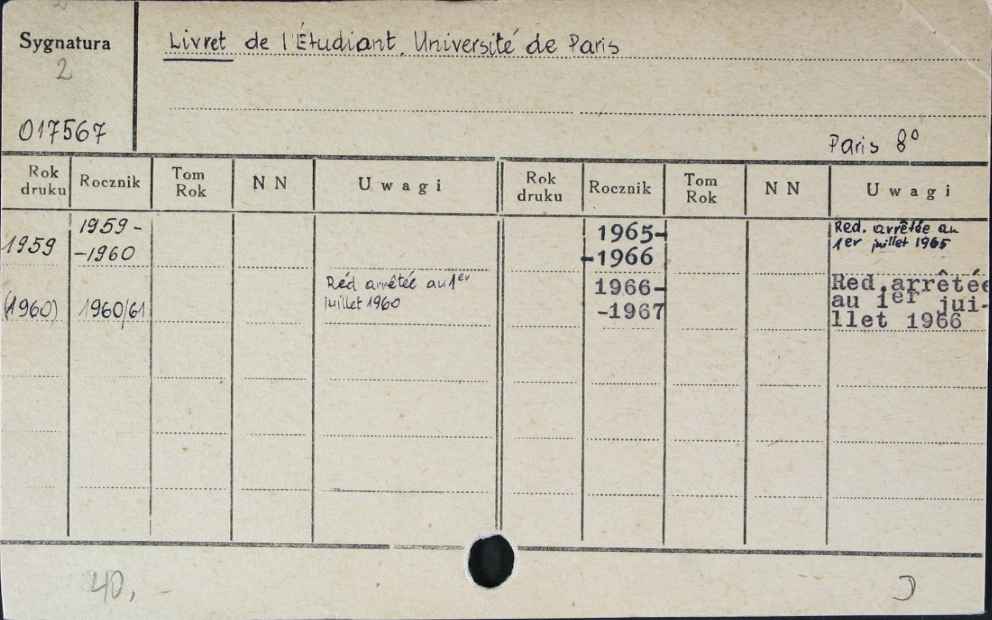 Sygnatura
2
017567
Livret de l'Étudiant, Université de Paris
Paris 8°
Rok druku Rocznik Tom Rok N N U w a g i Rok druku Rocznik Tom Rok N N U w a g i
1959 1959-
-1960
(1960) 1960/61 Réd arrêtée au 1er
juillet 1960
1965-
-1966
Red. arrêtée au
1er juillet 1965
1966-
-1967
Red.arrêtée
au 1er jui-
llet 1966
40,-